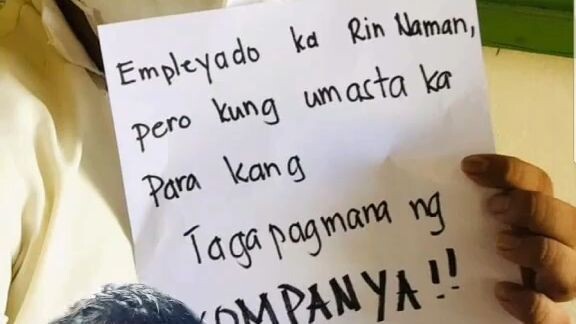 Empleyado ka Rin Naman,
pero kung umasta ka
Para kang
Tagapagmana ng
KOMPANYA!!